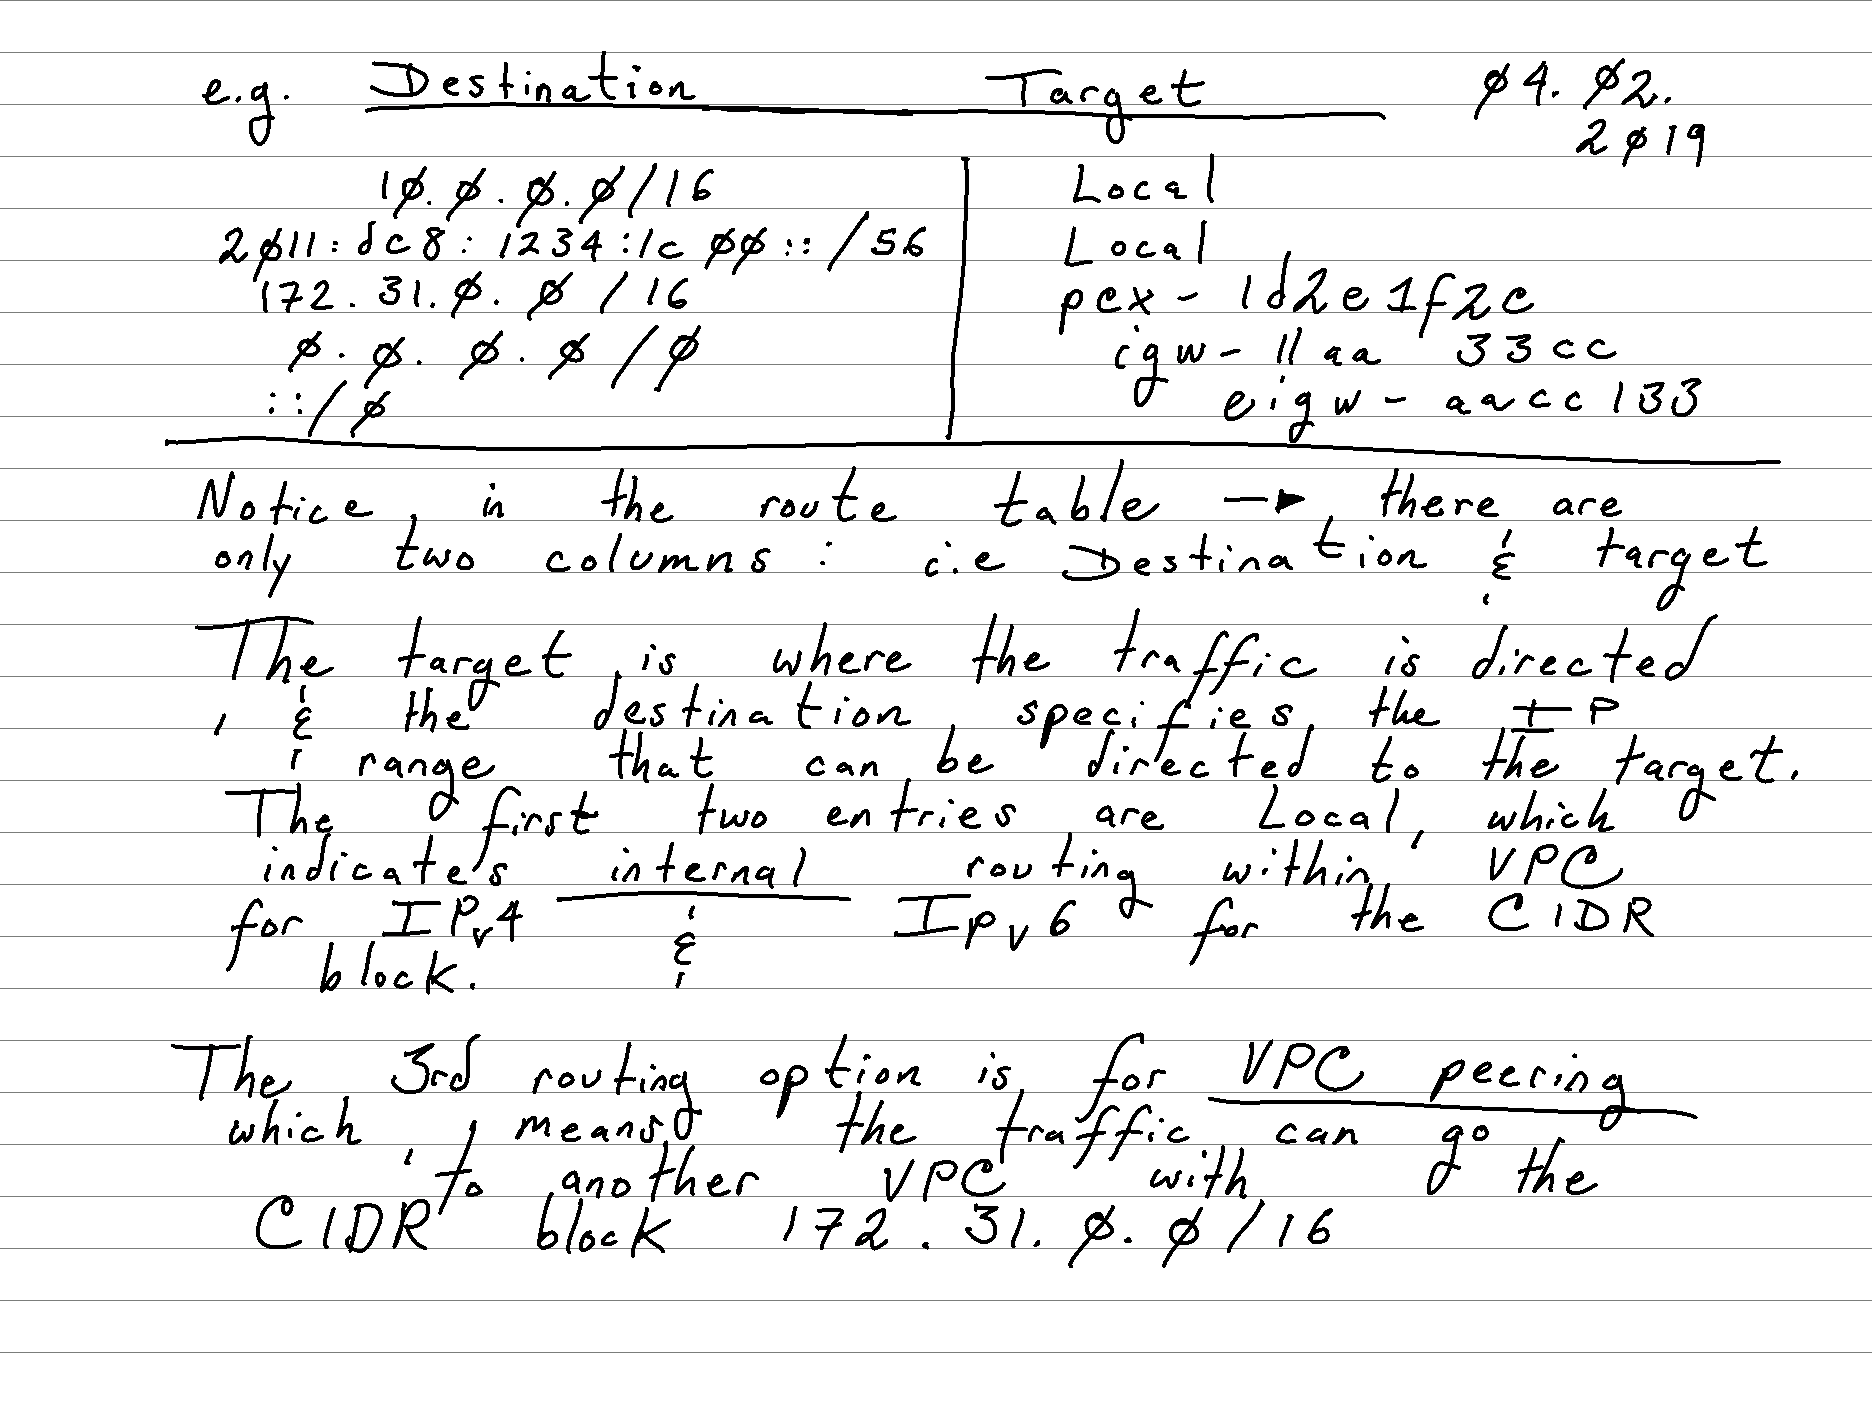 e.g. Destination Target 04. 02.
2019
10.0.0.0/16 Local
2011:dc8:1234:1c00::/56 Local
172.31.0.0/16 pcx-1d2e1f2c
0.0.0.0/0 igw-11aa33cc
::/0 eigw-aacc133
Notice, in the route table → there are
only two columns: i.e Destination & target
The target is where the traffic is directed
, & the destination specifies the IP
range that can be directed to the target.
The first two entries are Local, which
indicates internal routing within VPC
for IPv4 & Ipv6 for the CIDR
block.
The 3rd routing option is for VPC peering
which, means the traffic can go
to another VPC with the
CIDR block 172.31.0.0/16